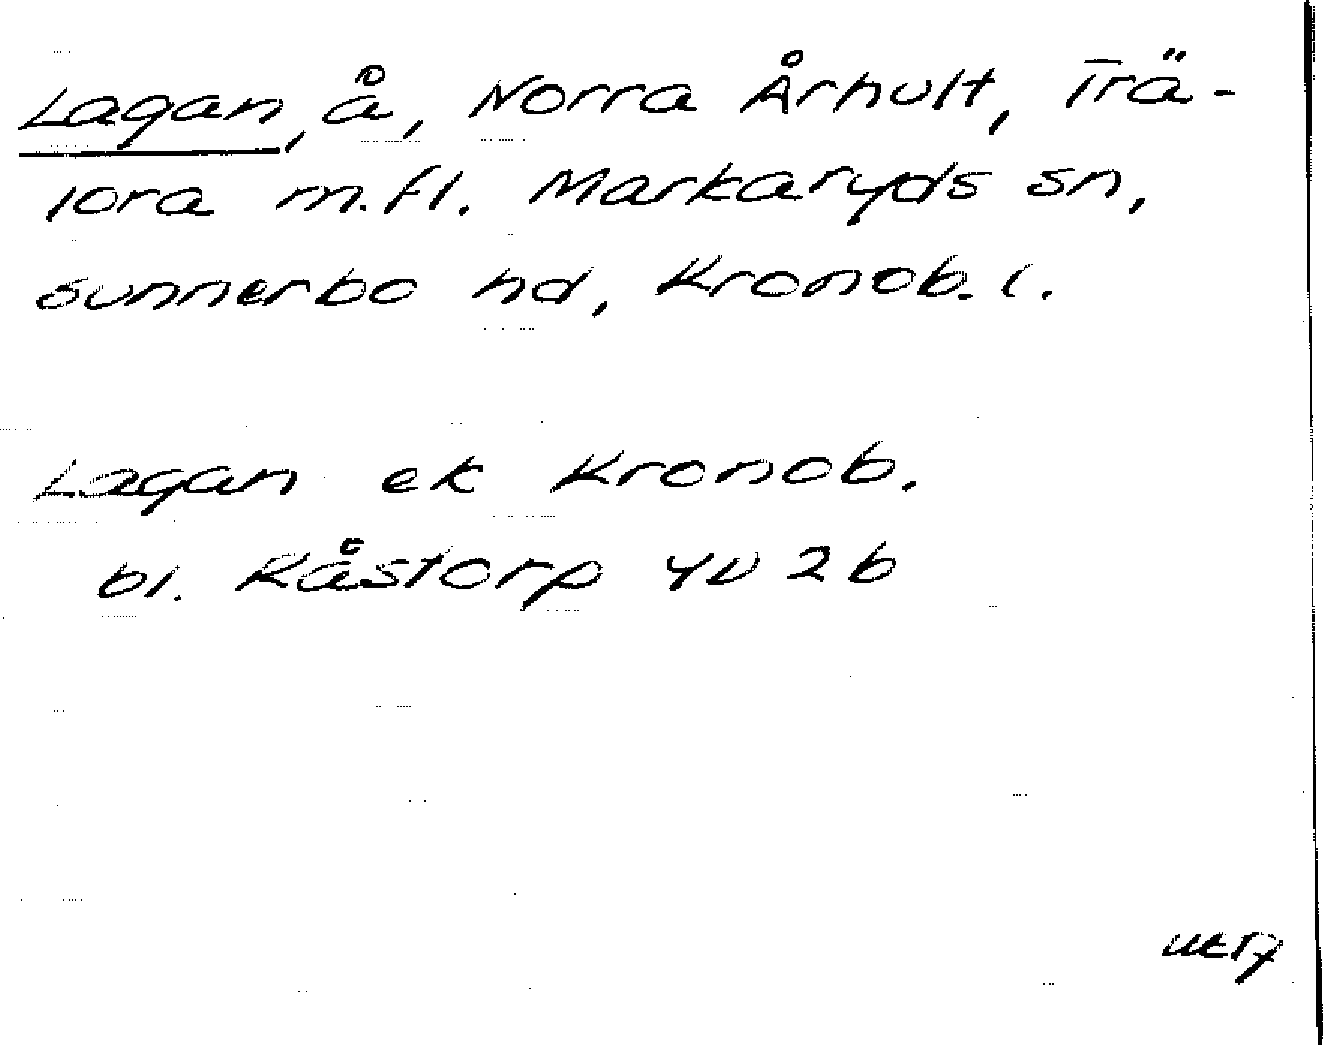 Lagan, å, Norra Århult, Trä-
lora m.fl. Markaryds sn,
Sunnerbo hd, Kronob. l.
Lagan ek Kronob.
bl. Råstorp 4D 2b